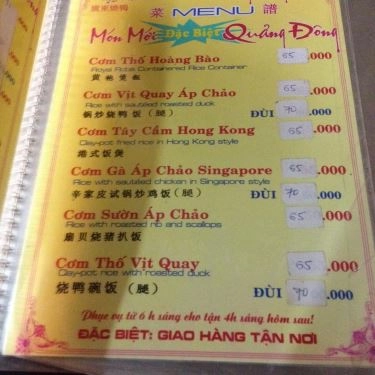 廣東燒鴨 菜 MENU 譜
Món Mới Đặc Biệt Quảng Đông
Cơm Thố Hoàng Bào 65.000
Royal Robe Containered Rice Container
Cơm Vịt Quay Áp Chảo 65.000
Rice with sautéed roasted duck
锅炒烧鸭饭（腿） ĐÙI 70.000
Cơm Tây Cầm Hong Kong 65.000
Clay-pot fried rice in Hong Kong style
港式飯煲
Cơm Gà Áp Chảo Singapore 65.000
Rice with sautéed chicken in Singapore style
辛家皮试锅炒鸡饭（腿） ĐÙI 70.000
Cơm Sườn Áp Chảo 65.000
Rice with roasted rib and scallops
扇贝烧猪扒饭
Cơm Thố Vịt Quay 65.000
Clay-pot rice with roasted duck
烧鸭碗饭（腿） ĐÙI 70.000
Phục vụ từ 6 h sáng cho tận 4h sáng hôm sau!
ĐẶC BIỆT: GIAO HÀNG TẬN NƠI